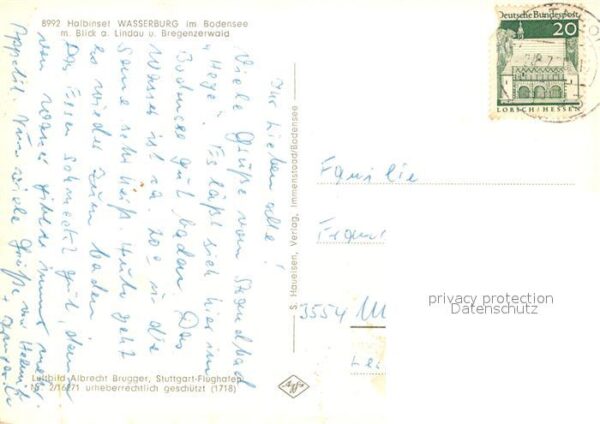 8992 Halbinsel WASSERBURG im Bodensee
m. Blick a. Lindau u. Bregenzerwald
Ihr lieben alle!
Viele Grüße vom Strandbad
"Hege". Es läßt sich hier im
Bodensee gut baden. Das
Wasser ist ca. 20° in die
Sonne sehr heiß. Heute geht
es wieder zum baden
Das Essen schmeckt gut, denn
wir haben immer mehr
Appetit. Nun viele Grüße von Helmut
S. Haueisen, Verlag, Immenstaad/Bodensee
Deutsche Bundespost
20
LORSCH/HESSEN
Familie
3554
privacy protection
Datenschutz
Luftbild Albrecht Brugger, Stuttgart-Flughafen
Nr. 2/16271 urheberrechtlich geschützt (1718)
Agfa